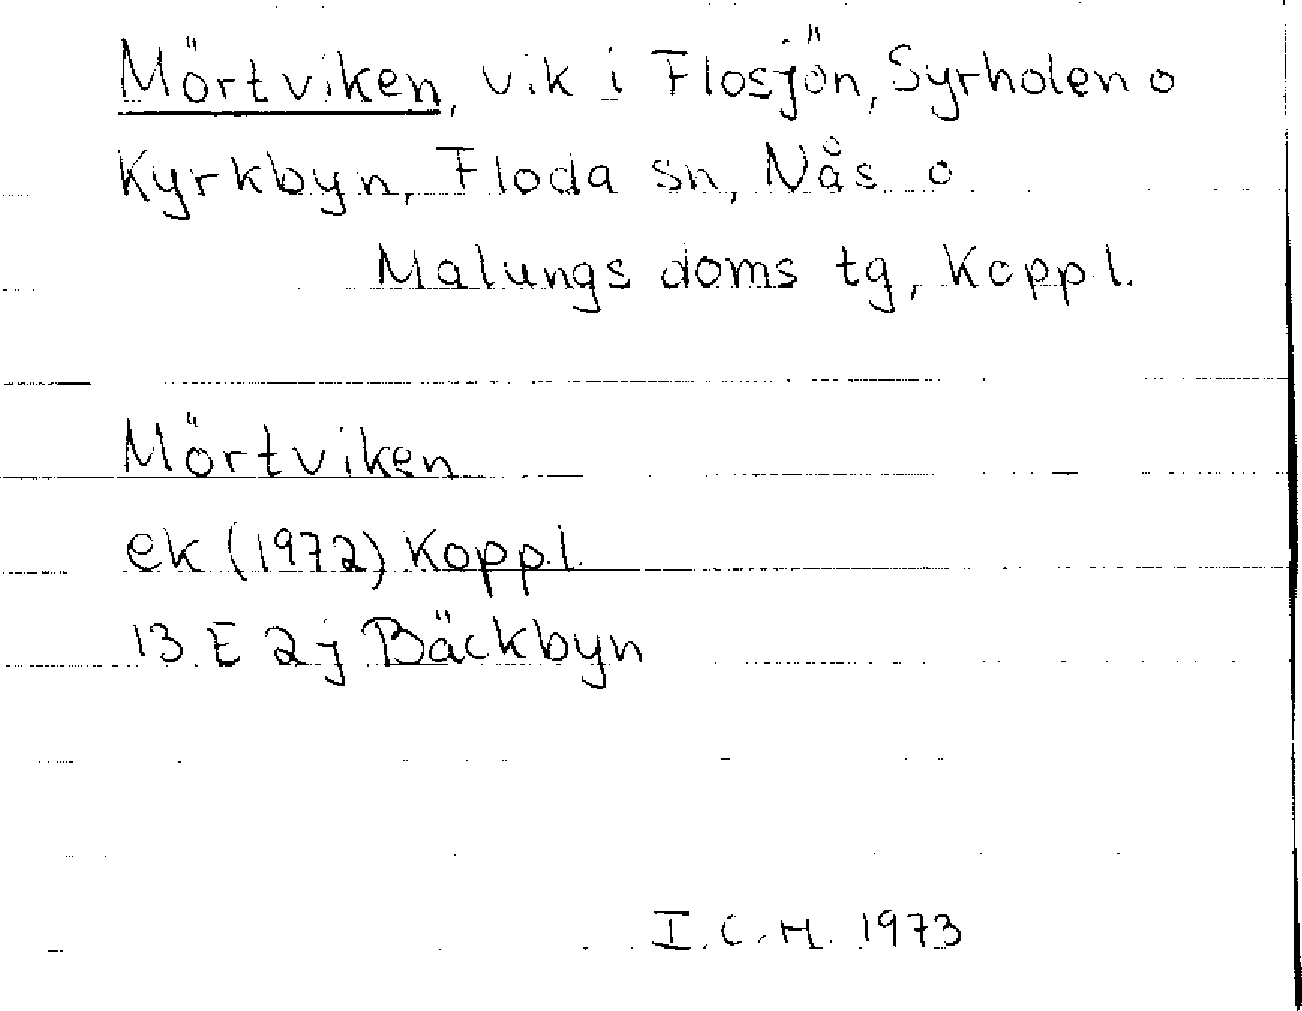 Mörtviken, vik i Flosjön, Syrholen o
Kyrkbyn, Floda sn, Nås o
Malungs doms tg, Koppl.
Mörtviken
ek (1972) Koppl.
13 E 2j Bäckbyn
I.C.H. 1973